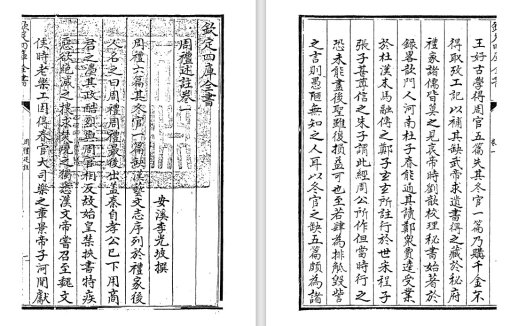 欽定四庫全書
周禮述註卷一
安溪李光坡撰
周禮六篇其冬官一篇缺漢藝文志序列於禮家後
人名之曰周禮周禮最後出蓋秦自孝公已下用商
君之屬其政酷烈與周官相反故始皇禁挾書特疾
惡欲絕滅之搜求焚燒之獨悉漢文帝嘗召至魏文
侯時老樂工因得春官大司樂之章景帝子河間獻
欽定四庫全書
周禮述註
欽定四庫全書
卷一
王好古學得周官五篇失其冬官一篇乃購千金不
得取攷工記以補其缺武帝求遺書得之藏於秘府
禮家諸儒皆莫之見哀帝時劉歆校理秘書始著於
錄畧歆門人河南杜子春能通其讀鄭衆賈逵受業
於杜漢末馬融傳之鄭子玄玄所註行於世宋程子
張子善尊信之朱子謂此經周公所作但當時行之
恐未能盡後聖雖復損益可也至若肆為排觝毀訾
之言則愚陋無知之人耳以冬官之缺五篇頗為諸